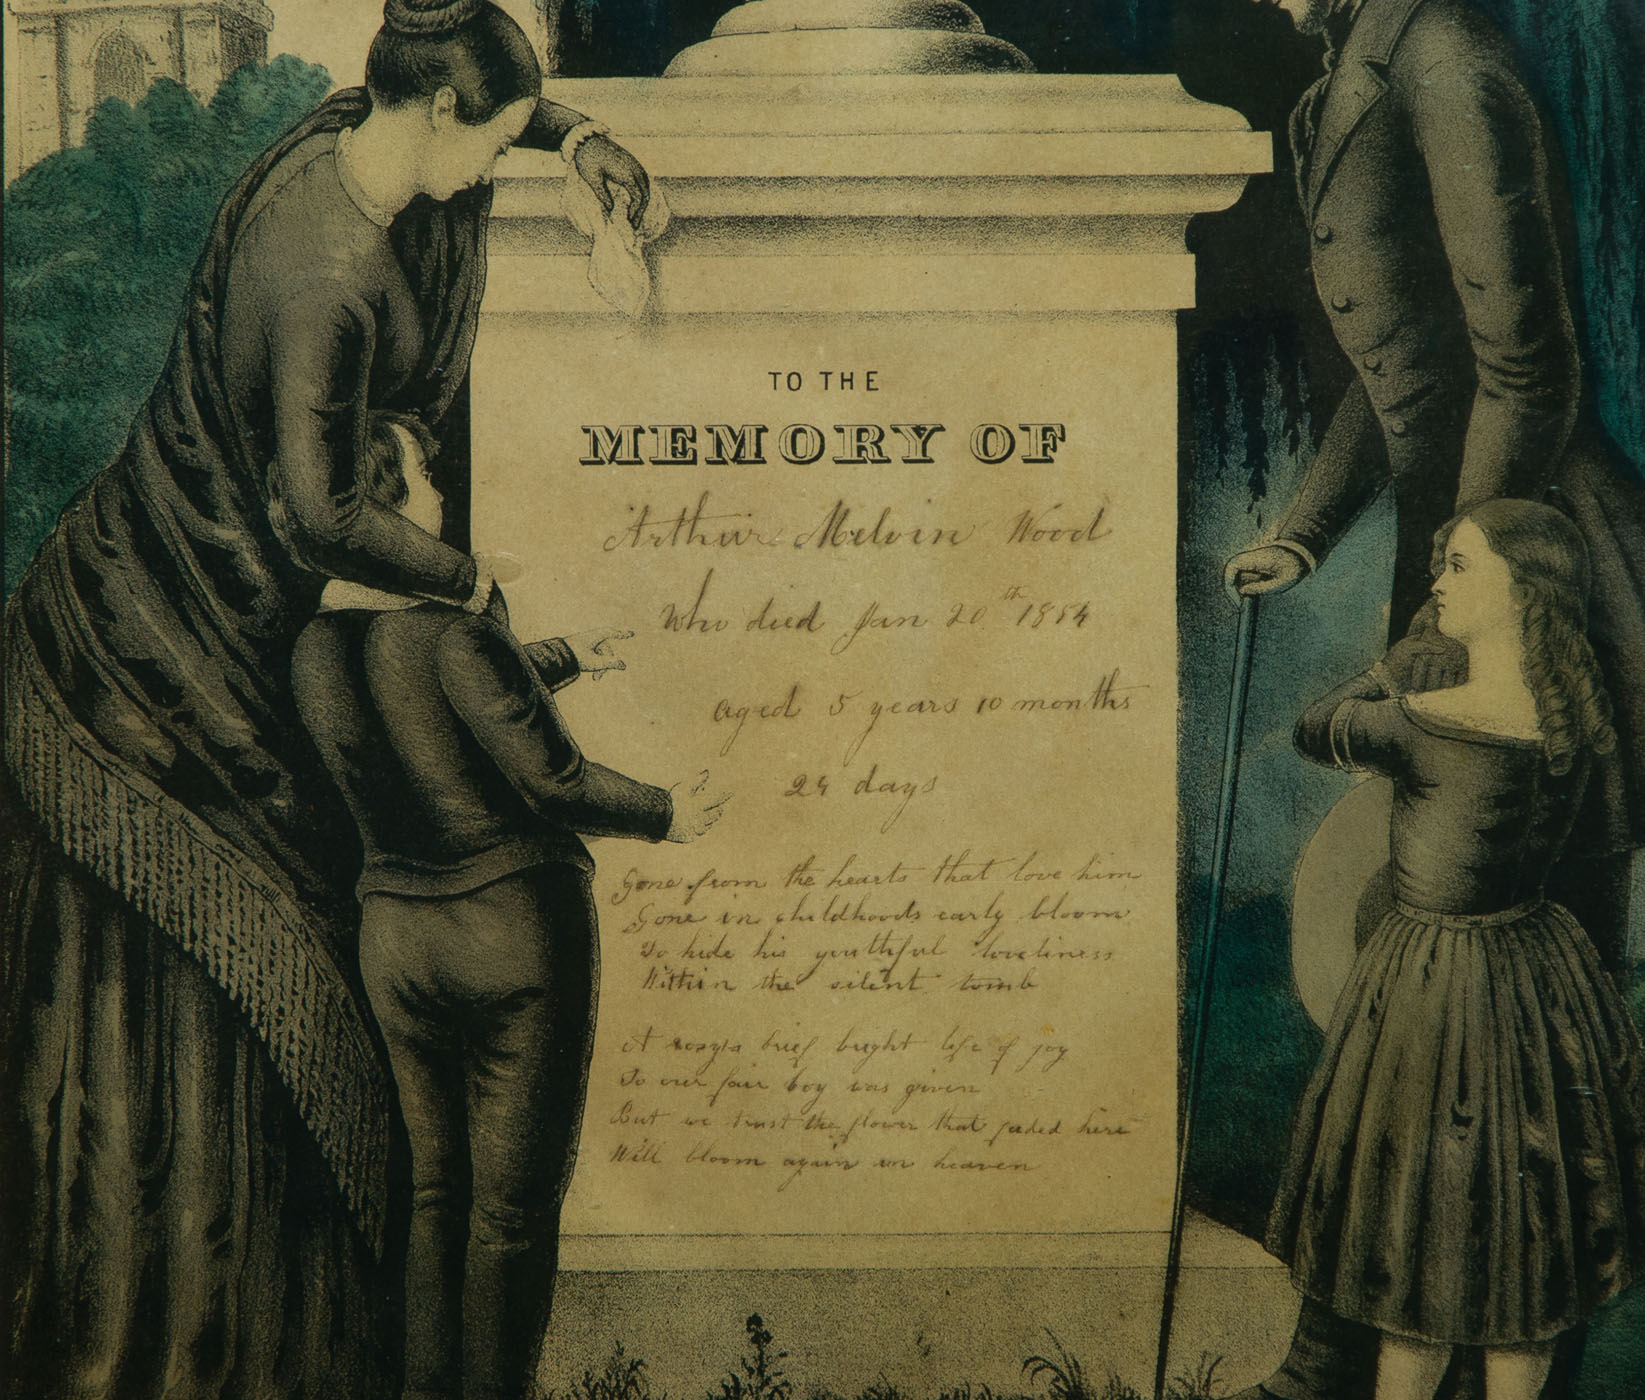 TO THE
MEMORY OF
Arthur Melvin Wood
Who died Jan 20th 1854
aged 5 years 10 months
24 days
Gone from the hearts that love him
Gone in childhoods early bloom
To hide his youthful loveliness
Within the silent tomb
A brief bright life of joy
To our fair boy was given
But we trust the flower that faded here
Will bloom again in heaven